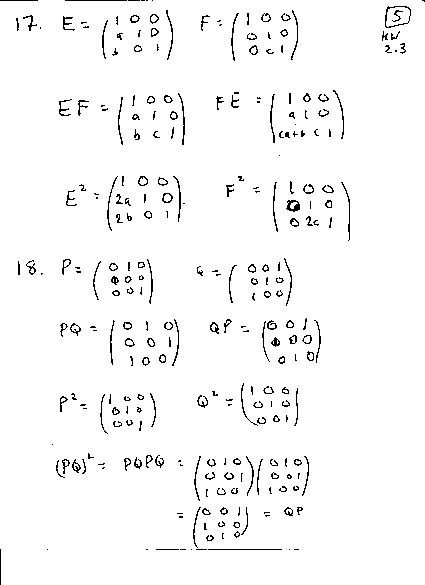 5
HW
2.3
17. E = (1 0 0 / a 1 0 / b 0 1) F = (1 0 0 / 0 1 0 / 0 c 1)
EF = (1 0 0 / a 1 0 / b c 1) FE = (1 0 0 / a 1 0 / ca+b c 1)
E² = (1 0 0 / 2a 1 0 / 2b 0 1). F² = (1 0 0 / 0 1 0 / 0 2c 1)
18. P = (0 1 0 / 1 0 0 / 0 0 1) Q = (0 0 1 / 0 1 0 / 1 0 0)
PQ = (0 1 0 / 0 0 1 / 1 0 0) QP = (0 0 1 / 1 0 0 / 0 1 0)
P² = (1 0 0 / 0 1 0 / 0 0 1) Q² = (1 0 0 / 0 1 0 / 0 0 1)
(PQ)² = PQPQ = (0 1 0 / 0 0 1 / 1 0 0) (0 1 0 / 0 0 1 / 1 0 0)
= (0 0 1 / 1 0 0 / 0 1 0) = QP